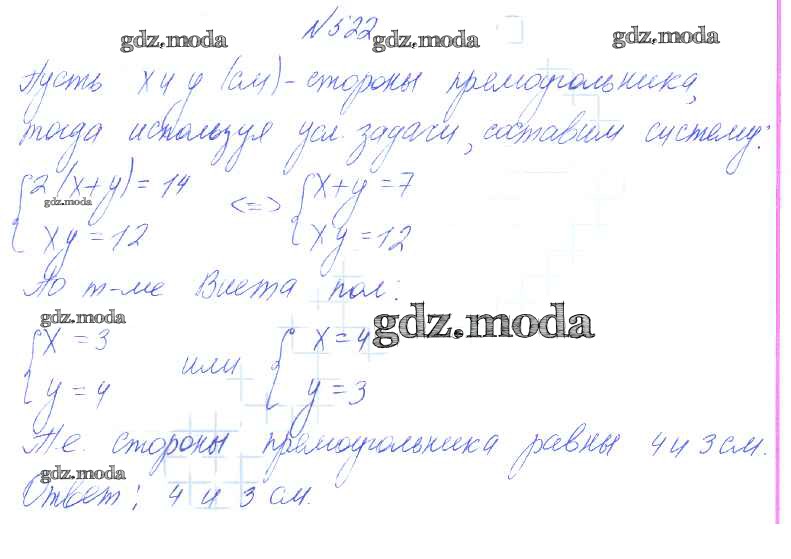 №522
gdz.moda gdz.moda gdz.moda
Пусть x и y (см) - стороны прямоугольника,
тогда используя усл. задачи, составим систему:
{2(x+y)=14 <=> {x+y=7
gdz.moda
xy=12 xy=12
По т-ме Виета пол:
gdz.moda gdz.moda
{x=3 или {x=4
y=4 y=3
Т.е. стороны прямоугольника равны 4 и 3 см.
gdz.moda
Ответ: 4 и 3 см.